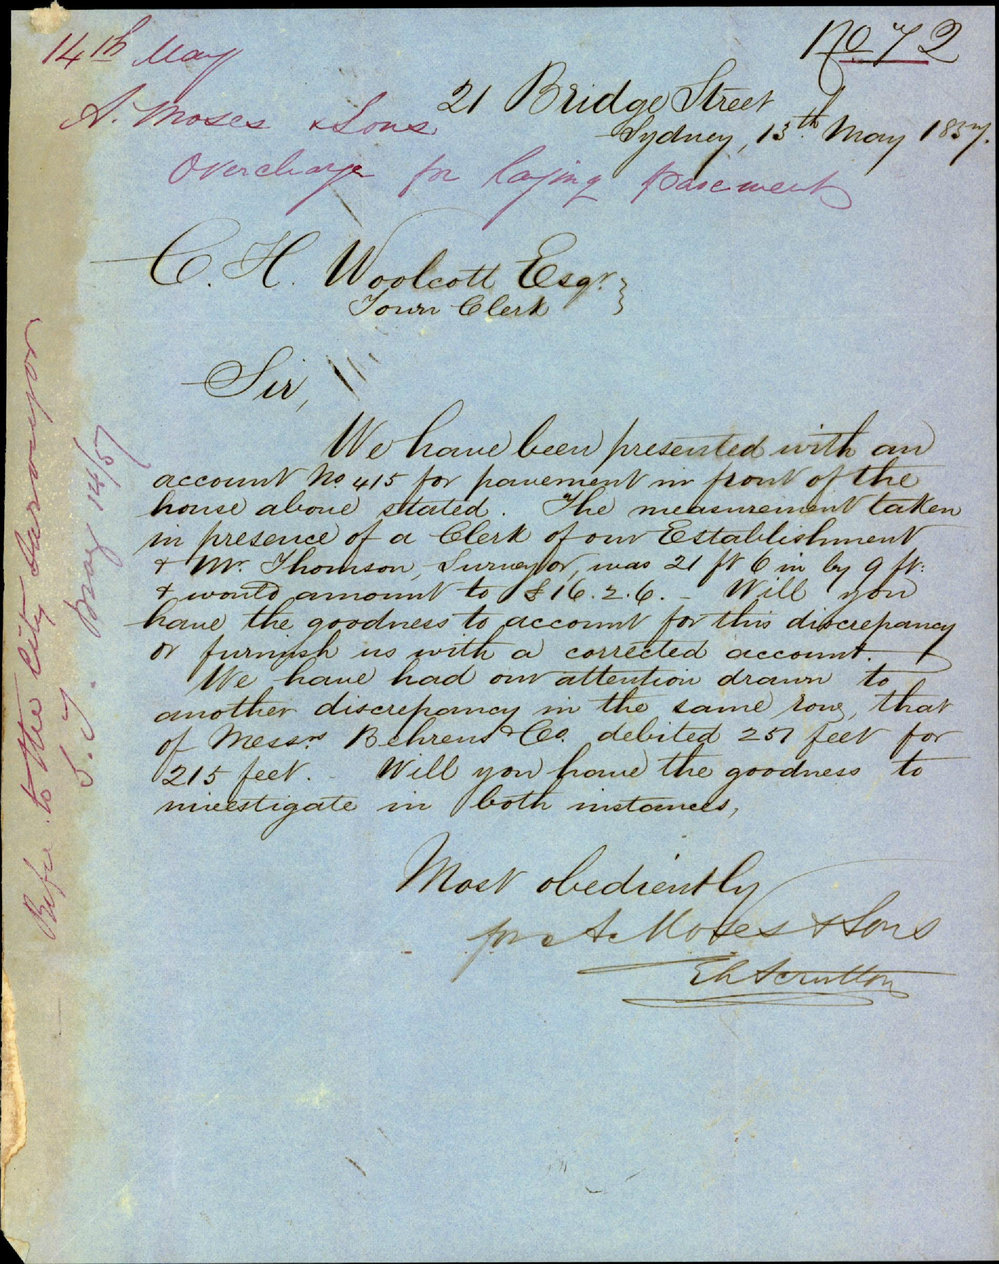 No 72
14th May
A. Moses & Sons
Overcharge for laying pavement
21 Bridge Street
Sydney, 13th May 1857.
C. H. Woolcott Esqr.
Town Clerk
Sir,
We have been presented with an
account No 415 for pavement in front of the
house above stated. The measurement taken
in presence of a Clerk of our Establishment
& Mr. Thomson, Surveyor, was 21 ft 6 in by 9 ft:
& would amount to £16.2.6. – Will you
have the goodness to account for this discrepancy
or furnish us with a corrected account.
We have had our attention drawn to
another discrepancy in the same row, that
of Messrs Behrens & Co. debited 251 feet for
215 feet. – Will you have the goodness to
investigate in both instances,
Most obediently
for A. Moses & Sons
Scrutton
Refer to the City Surveyor
May 14/57